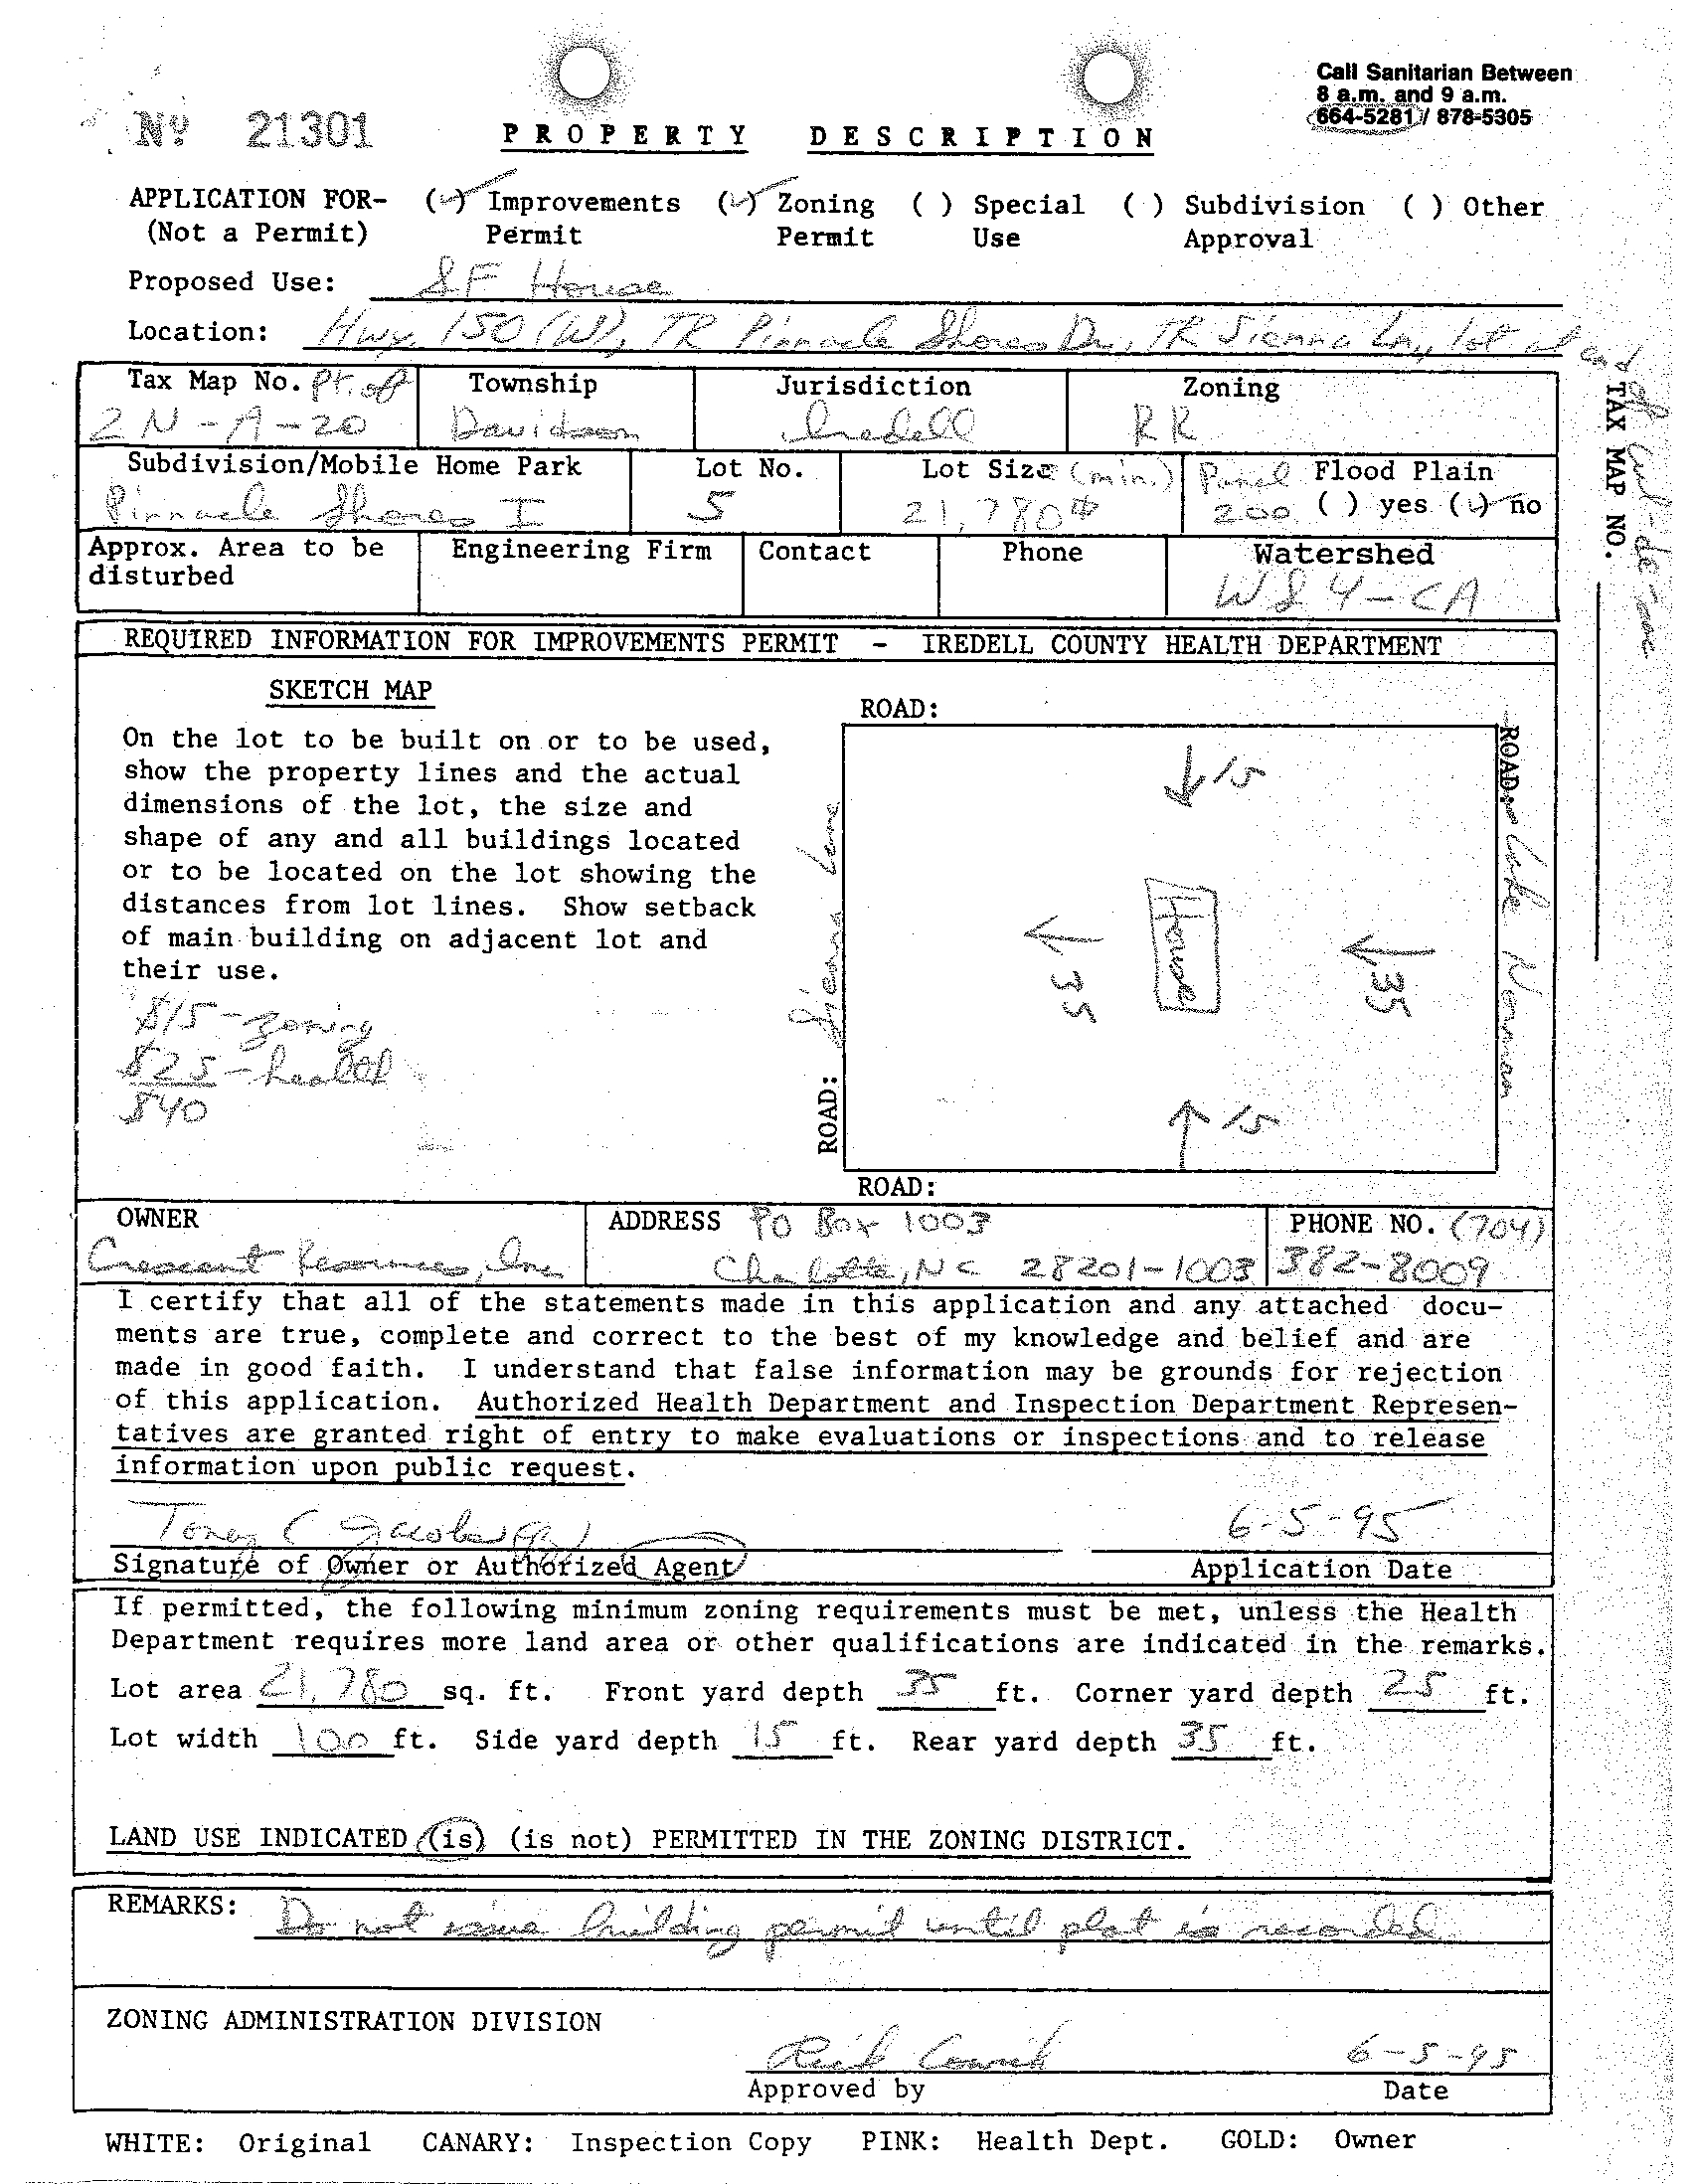 Call Sanitarian Between
8 a.m. and 9 a.m.
664-5281 / 878-5305
Nº 21301
PROPERTY DESCRIPTION
APPLICATION FOR- (✓) Improvements (✓) Zoning ( ) Special ( ) Subdivision ( ) Other
(Not a Permit) Permit Permit Use Approval
Proposed Use: SF House
Location: Hwy. 150 (W), TR Pinnacle Shores Dr., TR Sienna Ln., lot at end of cul-de-sac
TAX MAP NO.
Tax Map No. Pt. of Township Jurisdiction Zoning
2N-A-20 Davidson Iredell RR
Subdivision/Mobile Home Park Lot No. Lot Size (min.) Panel Flood Plain
Pinnacle Shores I 5 21,780 200 ( ) yes (✓) no
Approx. Area to be Engineering Firm Contact Phone Watershed
disturbed WS4-CA
REQUIRED INFORMATION FOR IMPROVEMENTS PERMIT - IREDELL COUNTY HEALTH DEPARTMENT
SKETCH MAP
On the lot to be built on or to be used,
show the property lines and the actual
dimensions of the lot, the size and
shape of any and all buildings located
or to be located on the lot showing the
distances from lot lines. Show setback
of main building on adjacent lot and
their use.
$15 - zoning
$25 - health
$40
ROAD:
ROAD: Lake Norman
↓ 15
← 35
House
← 35
↑ 15
ROAD: Sienna Lane
ROAD:
OWNER ADDRESS PO Box 1003 PHONE NO. (704)
Crescent Resources, Inc Charlotte, NC 28201-1003 382-8009
I certify that all of the statements made in this application and any attached docu-
ments are true, complete and correct to the best of my knowledge and belief and are
made in good faith. I understand that false information may be grounds for rejection
of this application. Authorized Health Department and Inspection Department Represen-
tatives are granted right of entry to make evaluations or inspections and to release
information upon public request.
6-5-95
Signature of Owner or Authorized Agent Application Date
If permitted, the following minimum zoning requirements must be met, unless the Health
Department requires more land area or other qualifications are indicated in the remarks.
Lot area 21,780 sq. ft. Front yard depth 35 ft. Corner yard depth 25 ft.
Lot width 100 ft. Side yard depth 15 ft. Rear yard depth 35 ft.
LAND USE INDICATED (is) (is not) PERMITTED IN THE ZONING DISTRICT.
REMARKS: Do not issue building permit until plat is recorded
ZONING ADMINISTRATION DIVISION
6-5-95
Approved by Date
WHITE: Original CANARY: Inspection Copy PINK: Health Dept. GOLD: Owner